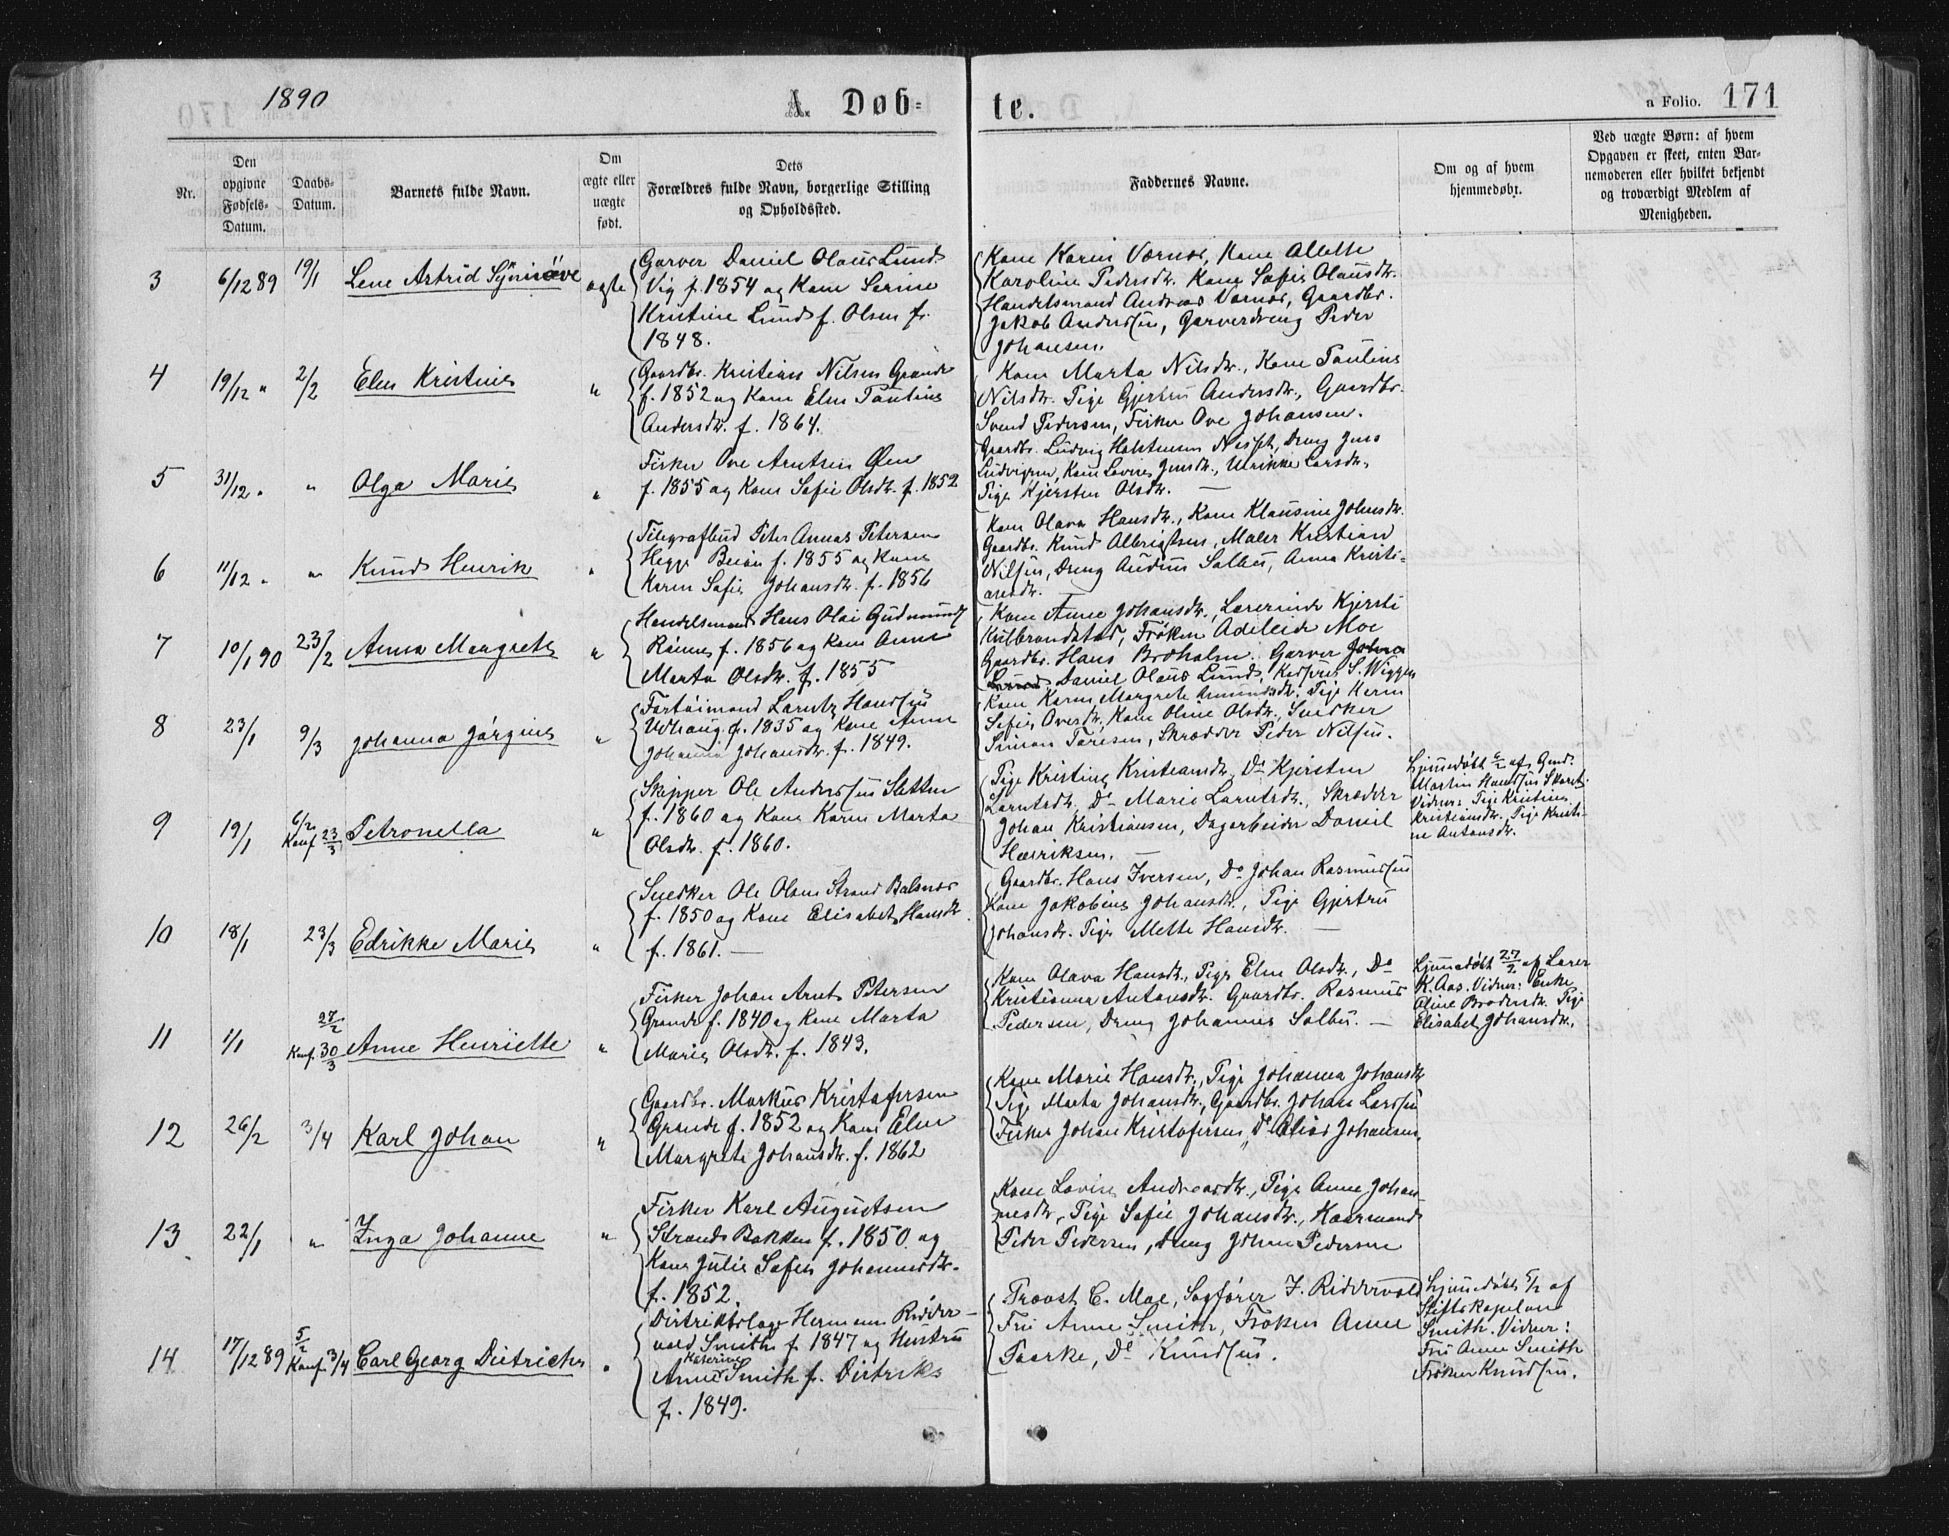 1890
A. Døb-
te.
a Folio. 171
Nr.
Den opgivne Fødsels-Datum.
Daabs-Datum.
Barnets fulde Navn.
Om ægte eller uægte født.
Dets Forældres fulde Navn, borgerlige Stilling og Opholdssted.
Faddernes Navne.
Om og af hvem hjemmedøbt.
Ved uægte Børn: af hvem Opgaven er skeet, enten Barnemoderen eller hvilket bekjendt og troværdigt Medlem af Menigheden.
3 6/12 89 19/1 Lene Astrid Synnøve ægte
Garver Daniel Olaus Lund
Vig f. 1854 og Kone Serine
Kristine Lund f. Olsen f.
1848.
Kone Karen Værnes, Kone Alette
Karoline Pedersdtr. Kone Sofie Olausdtr.
Handelsmand Andreas Værnes, Gaardbr.
Jakob Anderssen, Garverdreng Peder
Johansen.
4 19/12 " 2/2 Elen Kristine "
Gaardbr. Kristian Nilsen Grande
f. 1852 og Kone Elen Pauline
Andersdtr. f. 1864.
Kone Marta Nilsdtr., Kone Pauline
Nilsdtr. Pige Gjertru Andersdtr., Gaardbr.
Svend Pedersen, Fisker Ove Johansen.
5 31/12 " " Olga Marie "
Fisker Ove Arntsen Øien
f. 1855 og Kone Sofie Olsdtr. f. 1852
Gaardbr. Ludvig Holstensen, Dreng Jens
Ludvigsen, Kone Lovise Jensdtr., Ulrikke Larsdtr.
Pige Kjersten Olsdtr. —
6 11/12 " " Knud Henrik "
Telegrafbud Peter Petersen
f. 1855 og Kone
Karen Sofie Johansdtr. f. 1856
Kone Olava Hansdtr., Kone Klausine Johnsdtr.
Gaardbr. Knud Albrigtsen, Maler Kristian
Nilsen, Dreng Solbu, Anna Kristi-
ansdtr.
7 10/1 90 23/2 Anna Margrete "
Handelsmand Hans Olai Gudmunds
f. 1856 og Kone Anne
Marta Olsdtr. f. 1855
Kone Anne Johansdtr., Lærerinde Kjersti
Frøken Adeleide Moe
Gaardbr. Hans Brøholm. Garver
Daniel Olaus Lund, S. Wiggen
8 23/1 9/3 Johanna Jørgine "
Larntz Hansen
Udhaug f. 1835 og Kone Anne
Johanna Johansdtr. f. 1849.
Kone Karen Margrete Pige Karen
Sofie Kone Oline Olsdtr., Snedker
Simon Skrædder Peder Nilsen.
9 19/1 6/2 Konf. 23/3 Petronella "
Skipper Ole Anderssen Sletten
f. 1860 og Kone Karen Marta
Olsdtr. f. 1860.
Pige Kristine Kristiansdtr., Do Kjersten
Larntsdtr., Do Marie Larntsdtr., Skrædder
Johan Kristiansen, Dagarbeider Daniel
Henriksen.
Hjemmedøbt 6/2 af
Martin Hanssen
Vidner: Pige Kristine
Kristiansdtr., Pige Kristi-
ne Antonsdtr.
10 18/1 23/3 Edrikke Marie "
Snedker Ole Olsen Strand Balsnes
f. 1850 og Kone Elisabet Hansdtr.
f. 1861. —
Gaardbr. Hans Iversen, Do Johan Rasmussen
Kone Jakobine Johansdtr., Pige Gjertru
Johansdtr. Pige Mette Hansdtr. —
11 1/1 27/2 Konf. 30/3 Anne Henriette "
Fisker Johan Arnt Petersen
Grande f. 1840 og Kone Marta
Marie Olsdtr. f. 1843.
Kone Olava Hansdtr., Pige Elen Olsdtr., Do
Kristianna Antonsdtr. Gaardbr. Rasmus
Pedersen, Dreng Johannes Solbu. —
Hjemmedøbt 27/2 af Lærer
K. Aas. Vidner: Enke
Oline Brodersdtr. Pige
Elisabet Johansdtr.
12 26/2 3/4 Karl Johan "
Gaardbr. Markus Kristofersen
Grande f. 1852 og Kone Elen
Margrete Johansdtr. f. 1862
Kone Marie Hansdtr., Pige Johanna Johansdtr
Pige Marta Johansdtr., Gaardbr. Johan Larssen
Fisker Johan Kristofersen, Do Johansen.
13 22/1 " Inga Johanne "
Fisker Karl Augustsen
Strands Bakken f. 1850 og
Kone Julie Sofie Johannesdtr.
f. 1852.
Kone Lovise Andreasdtr., Pige Anne Johan-
nesdtr., Pige Sofie Johansdtr., Husmand
Peder Pedersen, Dreng Johan Pedersen
14 17/12 89 5/2 Konf. 3/4 Carl Georg Dietrichs "
Distriktslæge Hermann Ridder-
vold Smith f. 1847 og Hustru
Anne Katerine Smith f. Ditriks
f. 1849.
Provst C. Moe, Sagfører J. Riddervold
Fru Anne Smith, Frøken Anne
Paaske, Do Knudsen.
Hjemmedøbt 5/2 af
Stiftskapelan
Smith. Vidner:
Fru Anne Smith
Frøken Knudsen.